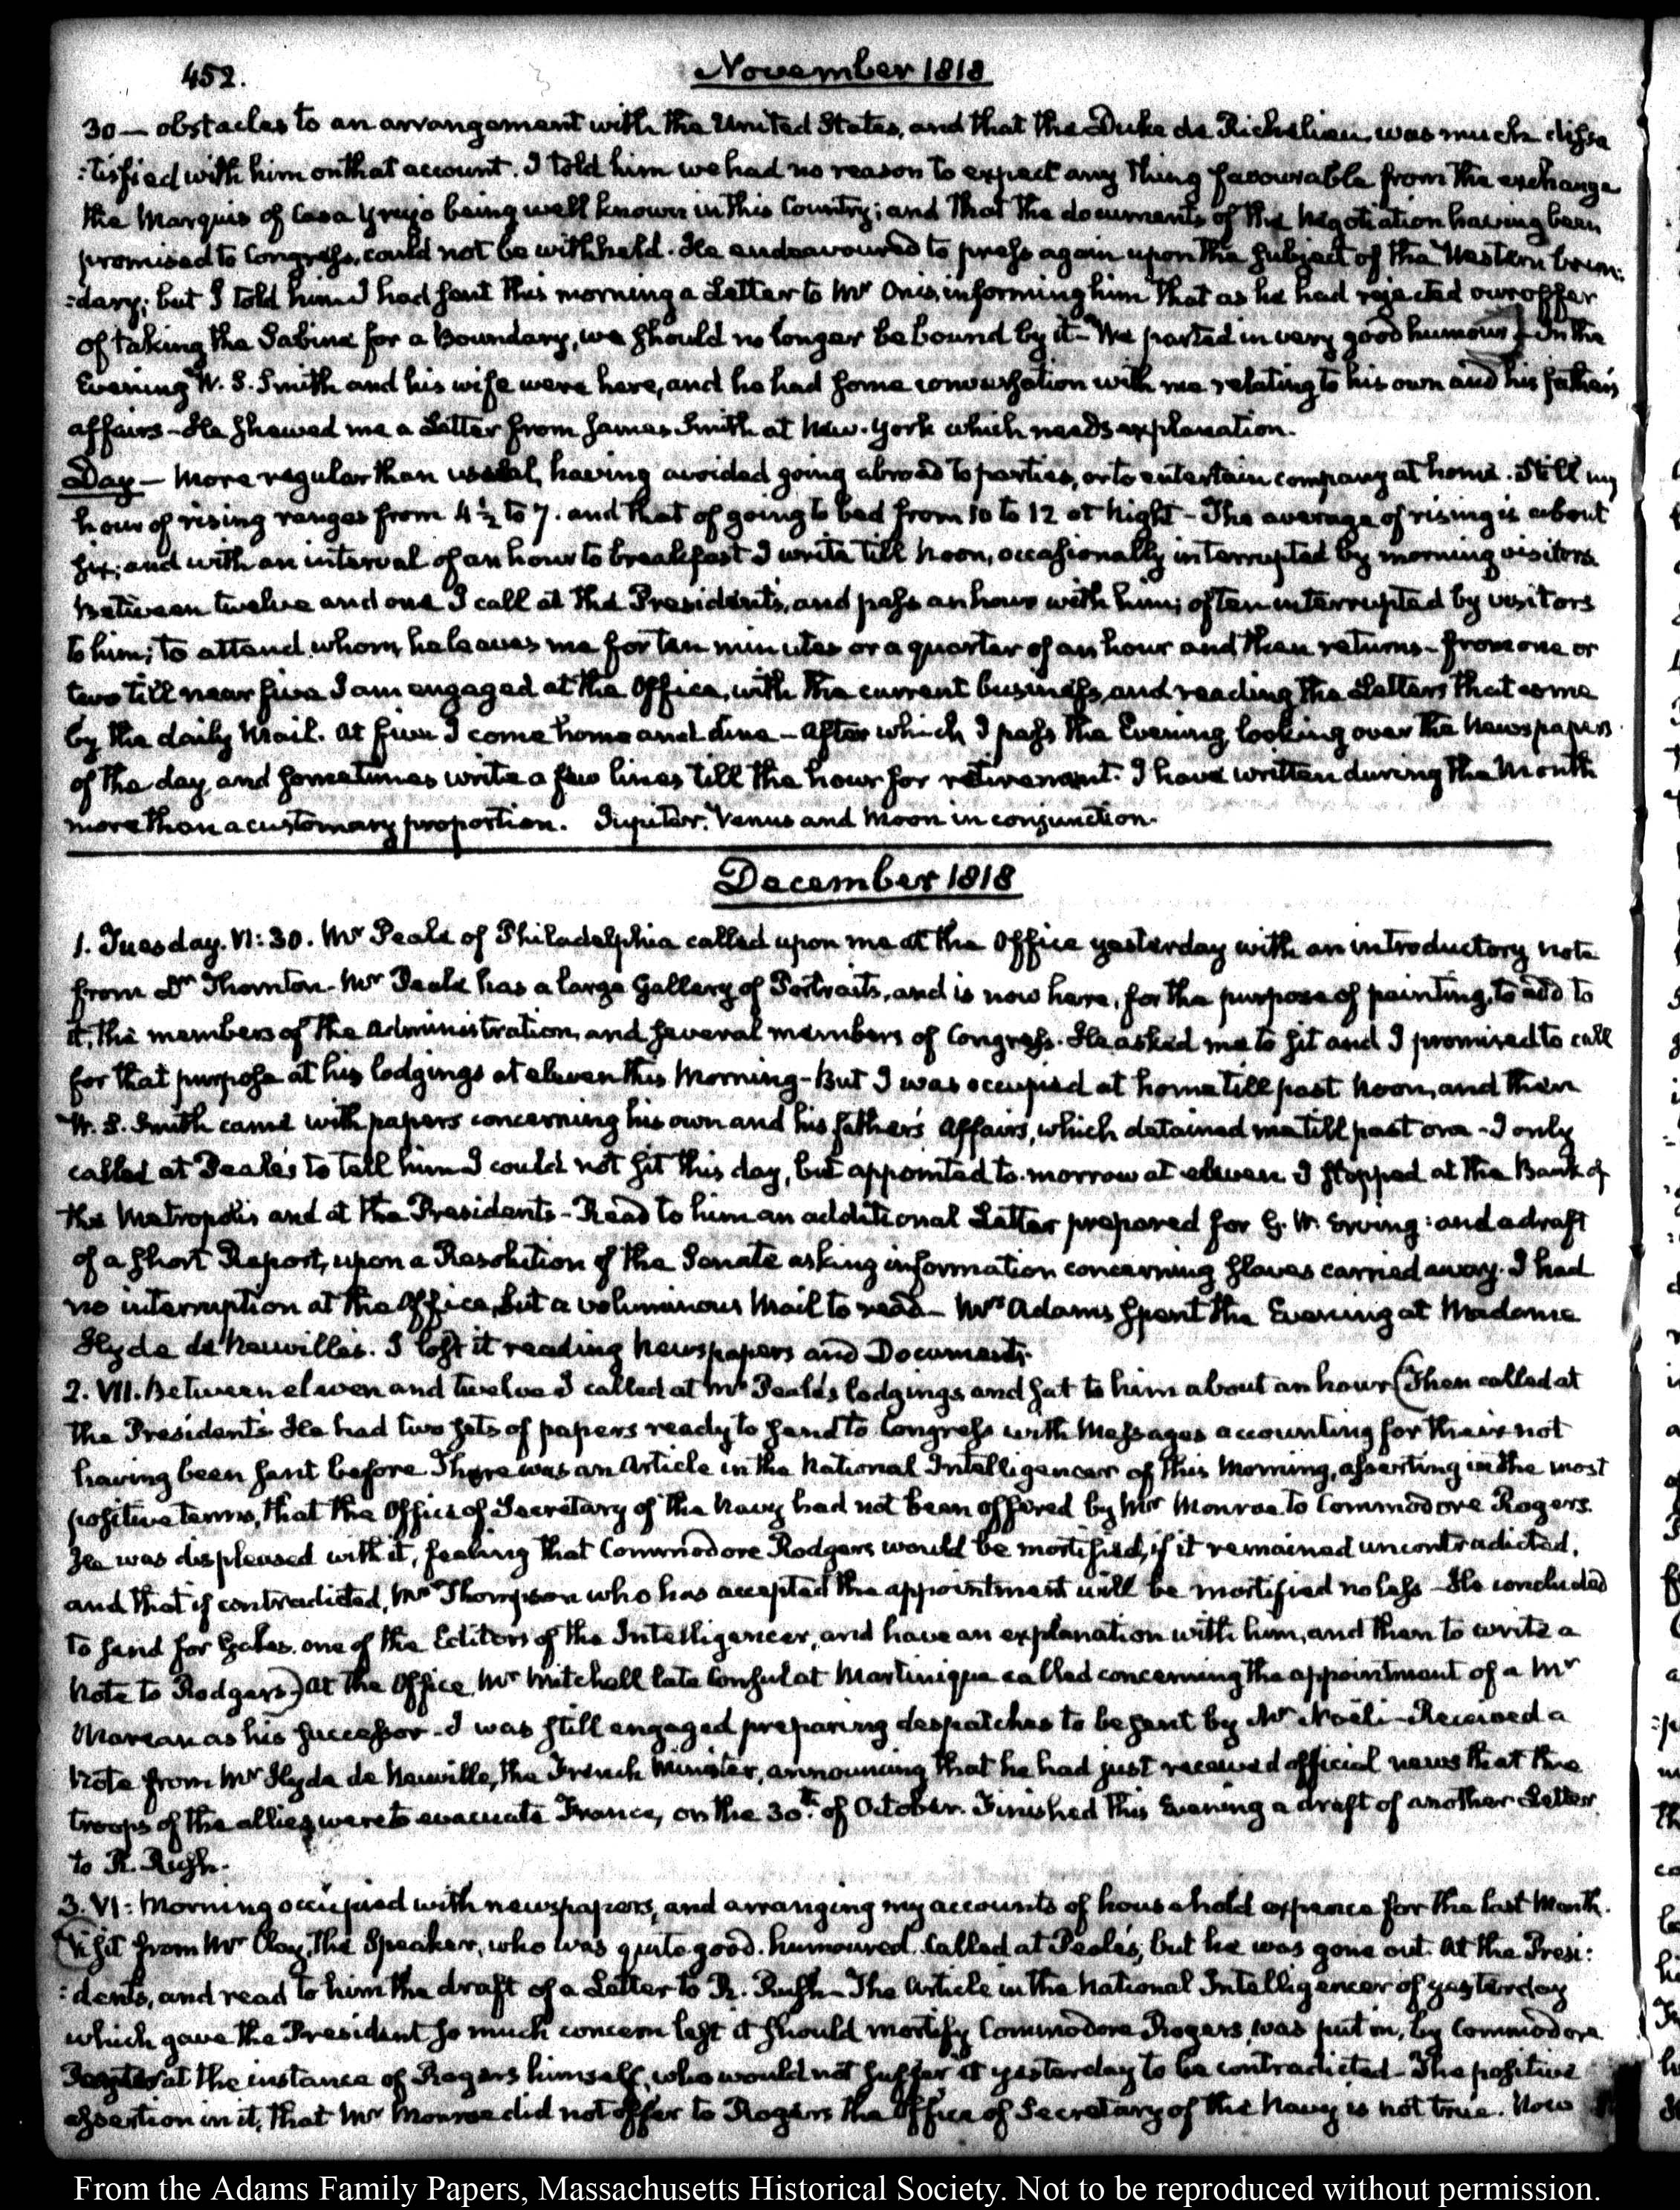 452.
November 1818
30 — obstacles to an arrangement with the United States, and that the Duke de Richelieu was much dissa
:tisfied with him on that account. I told him we had no reason to expect any thing favourable from the exchange
the Marquis of Casa Yrujo being well known in this Country; and that the documents of the Negotiation having been
promised to Congress, could not be withheld. He endeavoured to press again upon the subject of the Western boun:
:dary; but I told him I had sent this morning a Letter to Mr Onis, informing him that as he had rejected our offer
of taking the Sabine for a Boundary, we should no longer be bound by it — We parted in very good humour. In the
Evening W. S. Smith and his wife were here, and he had some conversation with me relating to his own and his father's
affairs — He shewed me a Letter from James Smith at New-York which needs explanation.
Day — More regular than usual, having avoided going abroad to parties, or to entertain company at home. Still my
hour of rising ranges from 4½ to 7. and that of going to bed from 10 to 12 at Night — The average of rising is about
six; and with an interval of an hour to breakfast I write till Noon, occasionally interrupted by morning visitors
Between twelve and one I call at the President's, and pass an hour with him; often interrupted by visitors
to him; to attend whom, he leaves me for ten minutes or a quarter of an hour and then returns — from one or
two till near five I am engaged at the Office, with the current business, and reading the Letters that come
by the daily Mail. At five I come home and dine — After which I pass the Evening, looking over the Newspapers
of the day, and sometimes write a few lines till the hour for retirement. I have written during the Month
more than a customary proportion. Jupiter, Venus and Moon in conjunction.
December 1818
1. Tuesday. VI:30. Mr Peale of Philadelphia called upon me at the Office yesterday with an introductory note
from Dr Thornton. Mr Peale has a large Gallery of Portraits, and is now here, for the purpose of painting, to add to
it, the members of the Administration, and several members of Congress. He asked me to sit and I promised to call
for that purpose at his lodgings at eleven this Morning — But I was occupied at home till past Noon, and then
W. S. Smith came with papers concerning his own and his father's Affairs, which detained me till past one — I only
called at Peale's to tell him I could not sit this day, but appointed to-morrow at eleven. I stopped at the Bank of
the Metropolis and at the President's — Read to him an additional Letter prepared for G. W. Erving: and a draft
of a short Report, upon a Resolution of the Senate asking information concerning slaves carried away. I had
no interruption at the Office, but a voluminous Mail to read — Mrs Adams spent the Evening at Madame
Hyde de Neuville's. I lost it reading Newspapers and Documents.
2. VII. Between eleven and twelve I called at Mr Peale's lodgings and sat to him about an hour (Then called at
the President's. He had two sets of papers ready to send to Congress with Messages accounting for their not
having been sent before. There was an Article in the National Intelligencer of this Morning, asserting in the most
positive terms, that the Office of Secretary of the Navy had not been offered by Mr Monroe to Commodore Rogers.
He was displeased with it, feeling that Commodore Rodgers would be mortified, if it remained uncontradicted,
and that if contradicted, Mr Thompson who has accepted the appointment will be mortified no less — He concluded
to send for Gales, one of the Editors of the Intelligencer, and have an explanation with him, and then to write a
Note to Rodgers) At the Office Mr Mitchell late Consul at Martinique called concerning the appointment of a Mr
as his successor — I was still engaged preparing despatches to be sent by Received a
Note from Mr Hyde de Neuville, the French Minister, announcing that he had just received official news that the
troops of the allies were to evacuate France, on the 30th of October. Finished this Evening a draft of another Letter
to R. Rush.
3. VI: Morning occupied with newspapers, and arranging my accounts of household expence for the last Month.
(Visit from Mr Clay, the Speaker, who was quite good-humoured. Called at Peale's, but he was gone out. At the Presi:
:dent's, and read to him the draft of a Letter to R. Rush — The Article in the National Intelligencer of yesterday
which gave the President so much concern lest it should mortify Commodore Rogers, was put in, by Commodore
at the instance of Rogers himself, who would not suffer it yesterday to be contradicted — The positive
assertion in it, that Mr Monroe did not offer to Rogers the Office of Secretary of the Navy is not true. Now
From the Adams Family Papers, Massachusetts Historical Society. Not to be reproduced without permission.